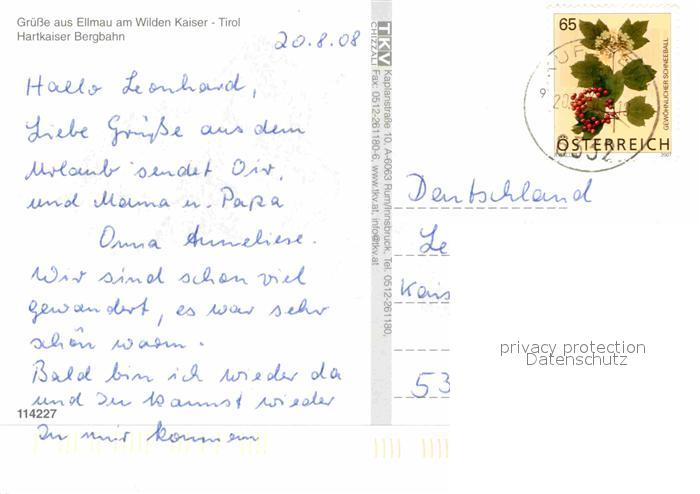 Grüße aus Ellmau am Wilden Kaiser - Tirol
Hartkaiser Bergbahn
20.8.08
Hallo Leonhard,
Liebe Grüße aus dem
Urlaub sendet Dir,
und Mama u. Papa
Omma Anneliese.
Wir sind schon viel
gewandert, es war sehr
schön warm.
Bald bin ich wieder da
und Du kannst wieder
zu mir kommen
114227
TKV
CHIZZALI
Kaplanstraße 10, A-6063 Rum/Innsbruck, Tel. 0512-261180,
Fax: 0512-261180-6, www.tkv.at, info@tkv.at
65
GEWÖHNLICHER SCHNEEBALL
ÖSTERREICH
2007
Deutschland
Le
Kais
53
privacy protection
Datenschutz